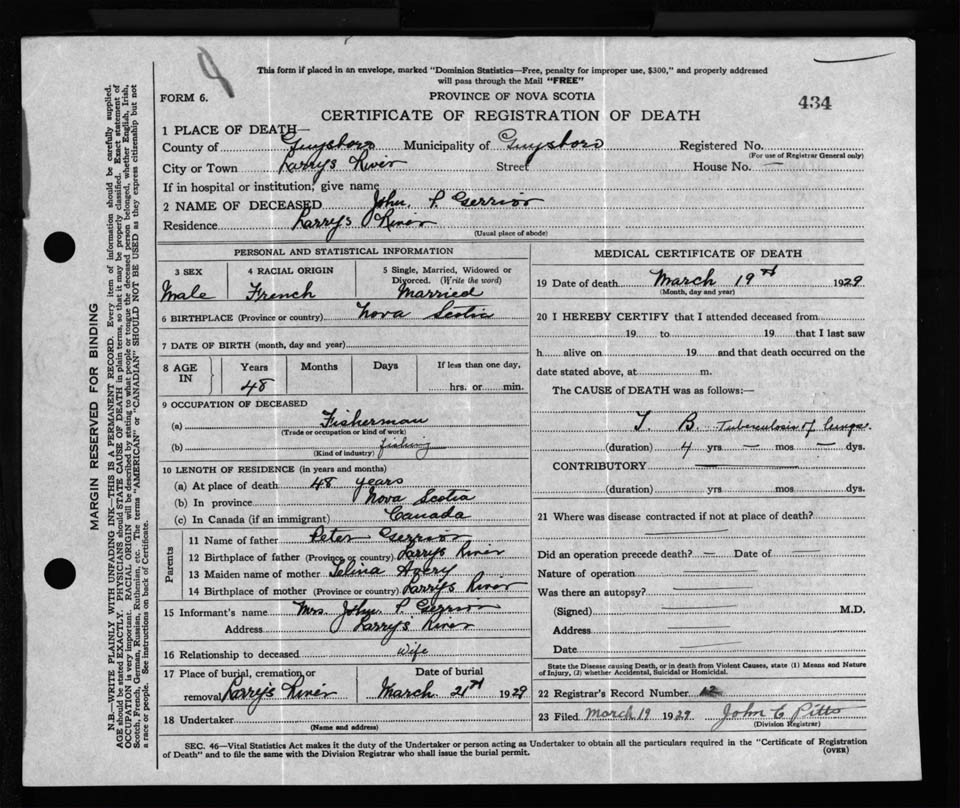 This form if placed in an envelope, marked "Dominion Statistics—Free, penalty for improper use, $300," and properly addressed
will pass through the Mail "FREE"
FORM 6.
PROVINCE OF NOVA SCOTIA
434
CERTIFICATE OF REGISTRATION OF DEATH
1 PLACE OF DEATH—
County of Guysboro Municipality of Guysboro Registered No.
(For use of Registrar General only)
City or Town Larrys River Street House No. —
If in hospital or institution, give name
2 NAME OF DECEASED John P. Gerrior
Residence Larrys River
(Usual place of abode)
PERSONAL AND STATISTICAL INFORMATION
3 SEX 4 RACIAL ORIGIN 5 Single, Married, Widowed or
Divorced. (Write the word)
Male French Married
6 BIRTHPLACE (Province or country) Nova Scotia
7 DATE OF BIRTH (month, day and year)
8 AGE IN Years Months Days If less than one day,
48 hrs. or min.
9 OCCUPATION OF DECEASED
(a) Fisherman
(Trade or occupation or kind of work)
(b) fishing
(Kind of industry)
10 LENGTH OF RESIDENCE (in years and months)
(a) At place of death 48 years
(b) In province Nova Scotia
(c) In Canada (if an immigrant) Canada
Parents
11 Name of father Peter Gerrior
12 Birthplace of father (Province or country) Larrys River
13 Maiden name of mother Selina Avery
14 Birthplace of mother (Province or country) Larrys River
15 Informant's name Mrs. John P Gerrior
Address Larrys River
16 Relationship to deceased wife
17 Place of burial, cremation, or Date of burial
removal Larrys River March 21st 1929
18 Undertaker
(Name and address)
MEDICAL CERTIFICATE OF DEATH
19 Date of death March 19th 1929
(Month, day and year)
20 I HEREBY CERTIFY that I attended deceased from
19 to 19 that I last saw
h alive on 19 and that death occurred on the
date stated above, at m.
The CAUSE of DEATH was as follows:—
T. B. Tuberculosis of lungs.
(duration) 4 yrs. — mos. — dys.
CONTRIBUTORY
(duration) yrs. mos. dys.
21 Where was disease contracted if not at place of death?
Did an operation precede death? — Date of
Nature of operation
Was there an autopsy?
(Signed) M.D.
Address
Date
State the Disease causing Death, or in death from Violent Causes, state (1) Means and Nature
of Injury, (2) whether Accidental, Suicidal or Homicidal.
22 Registrar's Record Number 12
23 Filed March 19 1929 John C Pitts
(Division Registrar)
SEC. 46—Vital Statistics Act makes it the duty of the Undertaker or person acting as Undertaker to obtain all the particulars required in the "Certificate of Registration
of Death" and to file the same with the Division Registrar who shall issue the burial permit.
(OVER)
MARGIN RESERVED FOR BINDING
N.B.—WRITE PLAINLY WITH UNFADING INK—THIS IS A PERMANENT RECORD. Every item of information should be carefully supplied.
AGE should be stated EXACTLY. PHYSICIANS should STATE CAUSE OF DEATH in plain terms, so that it may be properly classified. Exact statement of
OCCUPATION is very important. RACIAL ORIGIN will be described by stating to what people or tongue the deceased person belonged, whether English, Irish,
Scotch, French, German, Russian, Ruthenian, etc. The terms "AMERICAN" or "CANADIAN" SHOULD NOT BE USED as they express citizenship but not
a race or people. See instructions on back of Certificate.